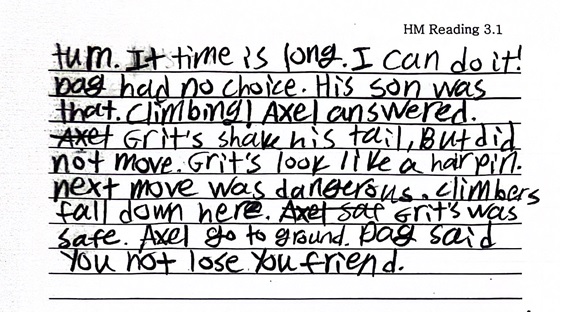 HM Reading 3.1
turn. It time is long. I can do it!
Dag had no choice. His son was
that. Climbing! Axel answered.
Axel Grit's shake his tail, But did
not move. Grit's look like a hairpin.
next move was dangerous. climbers
fall down here. Axel saf Grit's was
safe. Axel go to ground. Dag said
You not lose You friend.